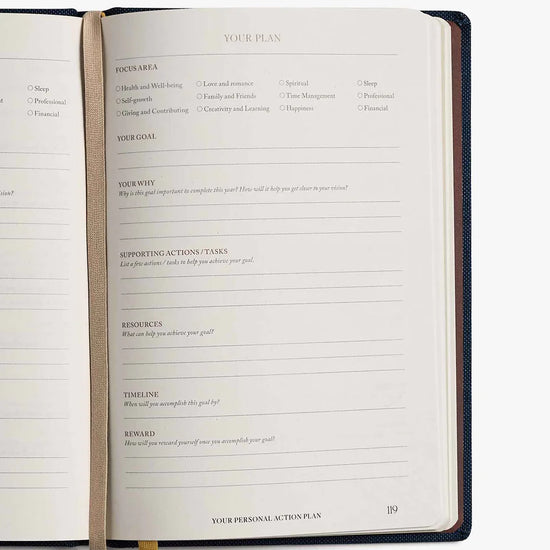 Sleep
Professional
Financial
YOUR PLAN
FOCUS AREA
Health and Well-being Love and romance Spiritual Sleep
Self-growth Family and Friends Time Management Professional
Giving and Contributing Creativity and Learning Happiness Financial
YOUR GOAL
YOUR WHY
Why is this goal important to complete this year? How will it help you get closer to your vision?
SUPPORTING ACTIONS / TASKS
List a few actions / tasks to help you achieve your goal.
RESOURCES
What can help you achieve your goal?
TIMELINE
When will you accomplish this goal by?
REWARD
How will you reward yourself once you accomplish your goal?
YOUR PERSONAL ACTION PLAN 119